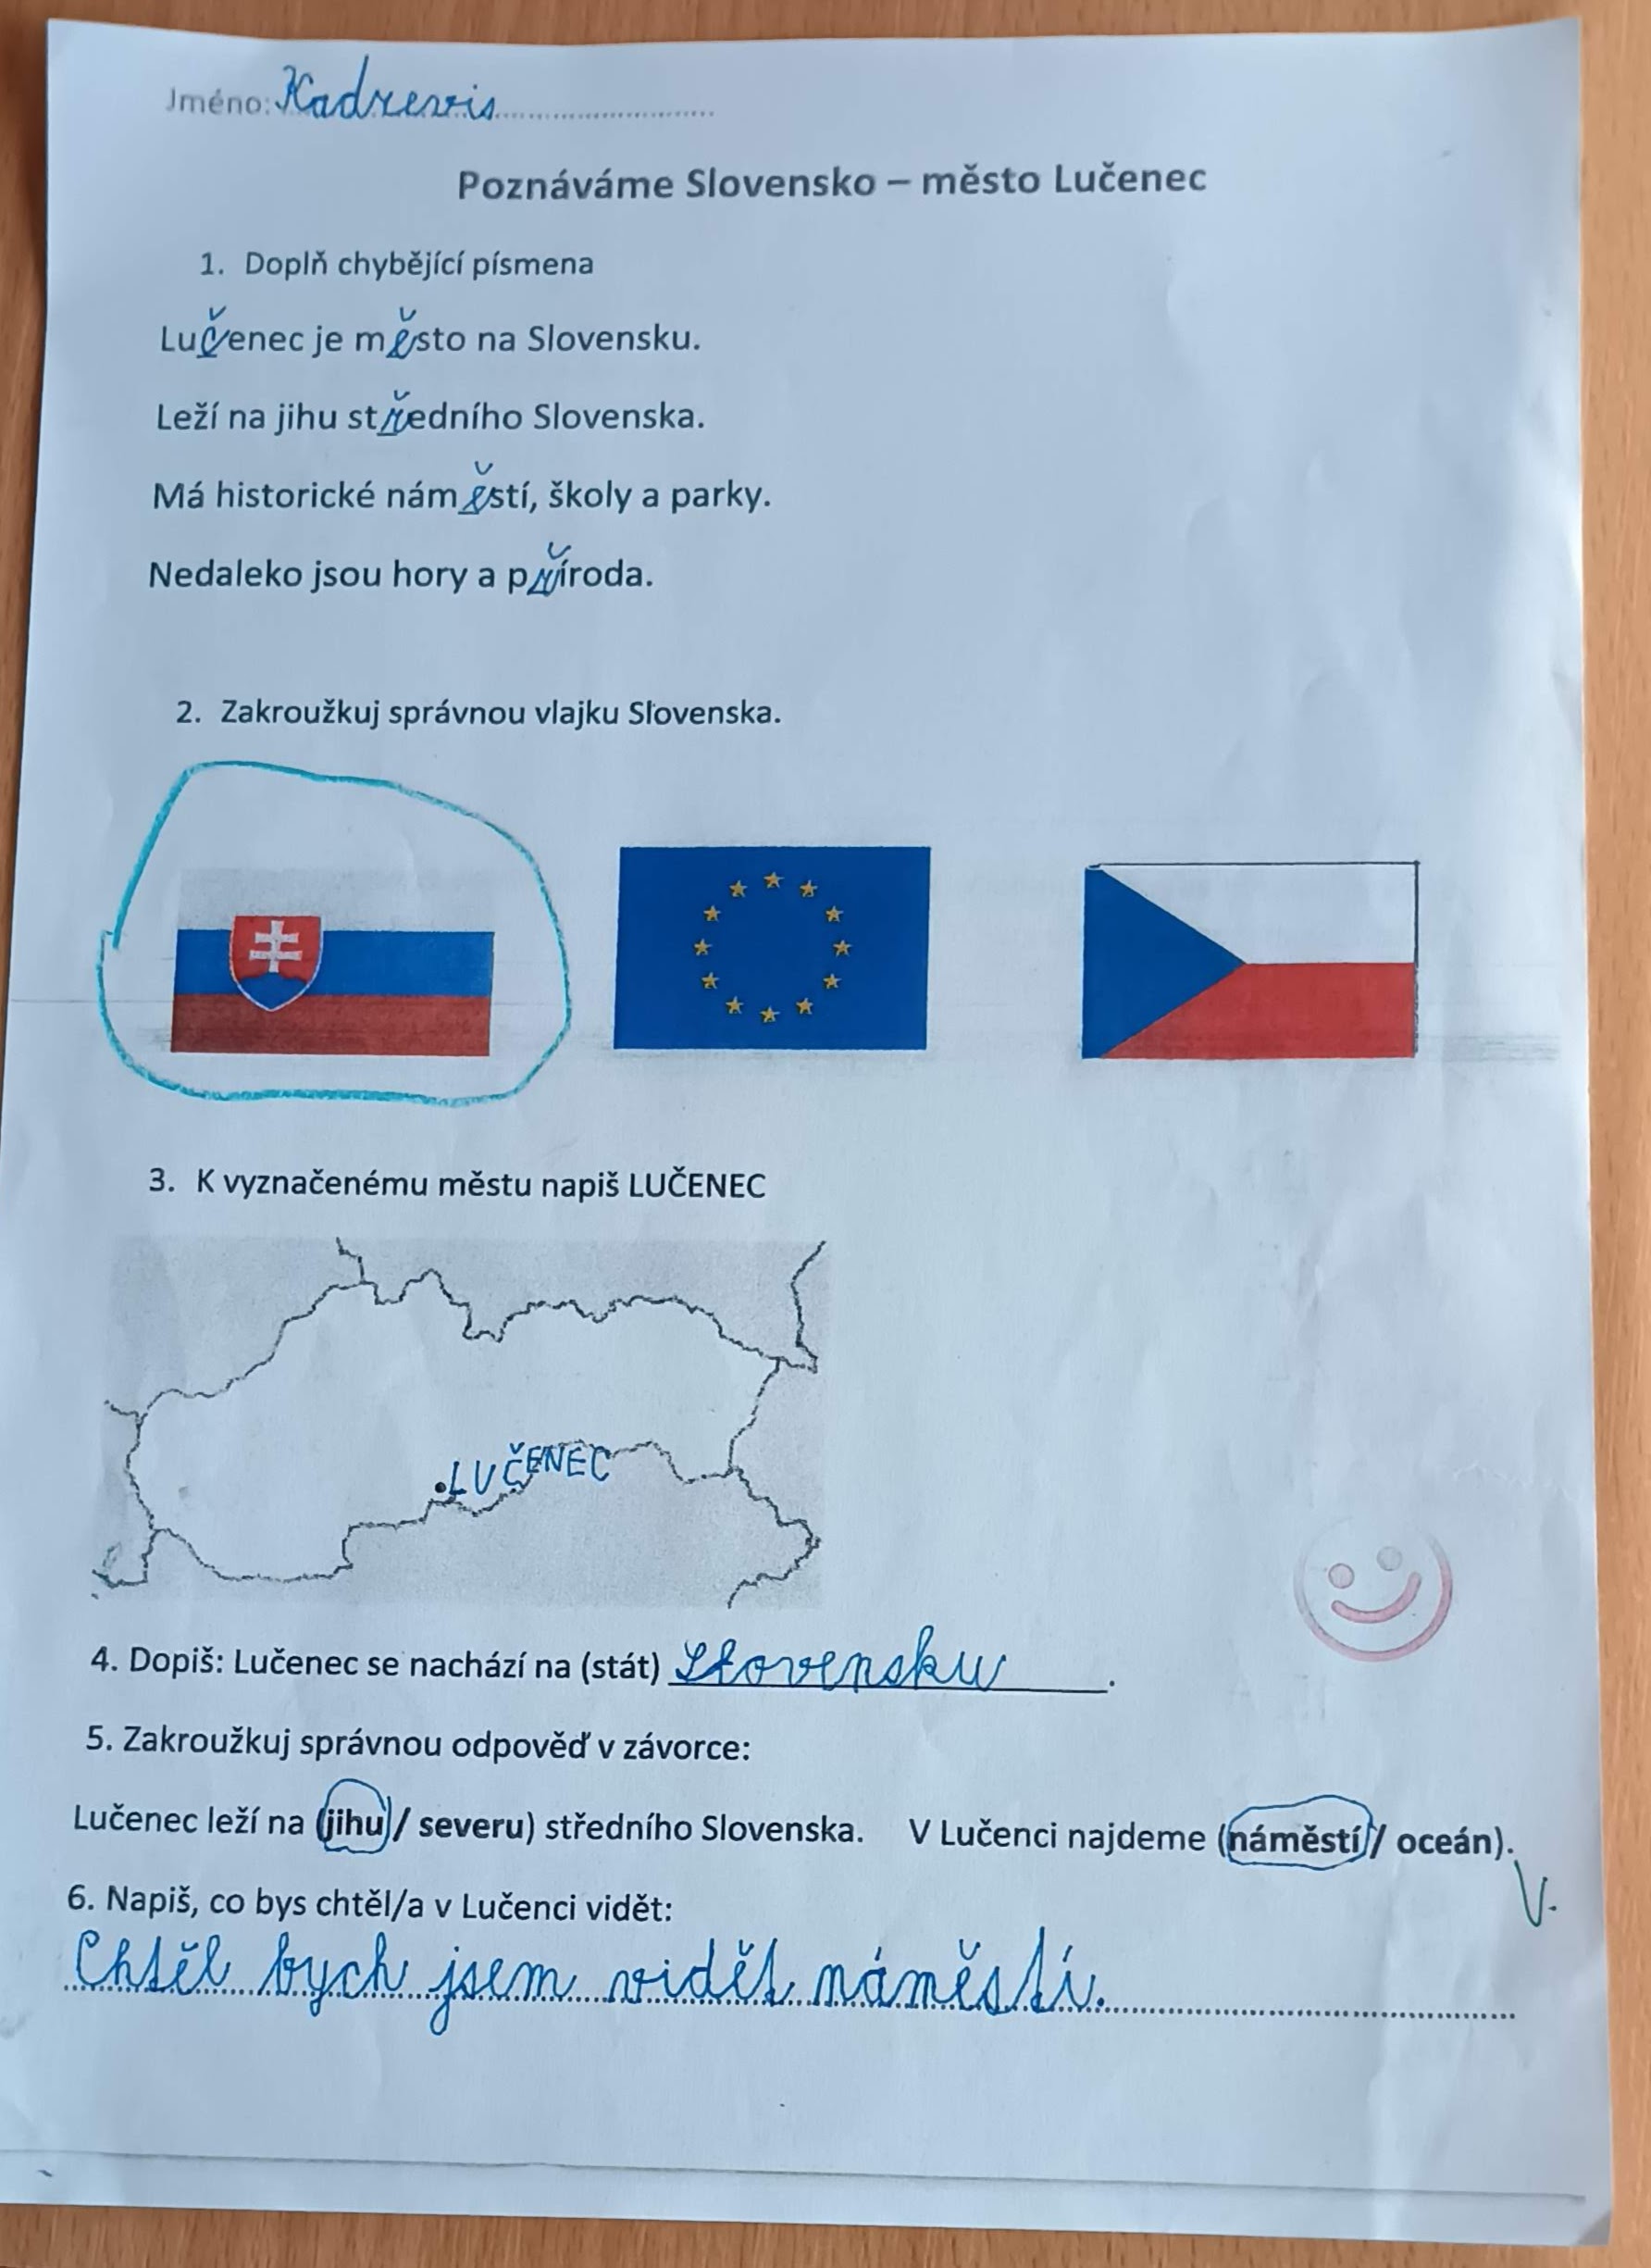 Jméno: Kadrevis
Poznáváme Slovensko – město Lučenec
1. Doplň chybějící písmena
Lučenec je město na Slovensku.
Leží na jihu středního Slovenska.
Má historické náměstí, školy a parky.
Nedaleko jsou hory a příroda.
2. Zakroužkuj správnou vlajku Slovenska.
3. K vyznačenému městu napiš LUČENEC
.LUČENEC
4. Dopiš: Lučenec se nachází na (stát) Slovensku.
5. Zakroužkuj správnou odpověď v závorce:
Lučenec leží na (jihu / severu) středního Slovenska. V Lučenci najdeme (náměstí / oceán).
6. Napiš, co bys chtěl/a v Lučenci vidět:
Chtěl bych jsem vidět náměstí.